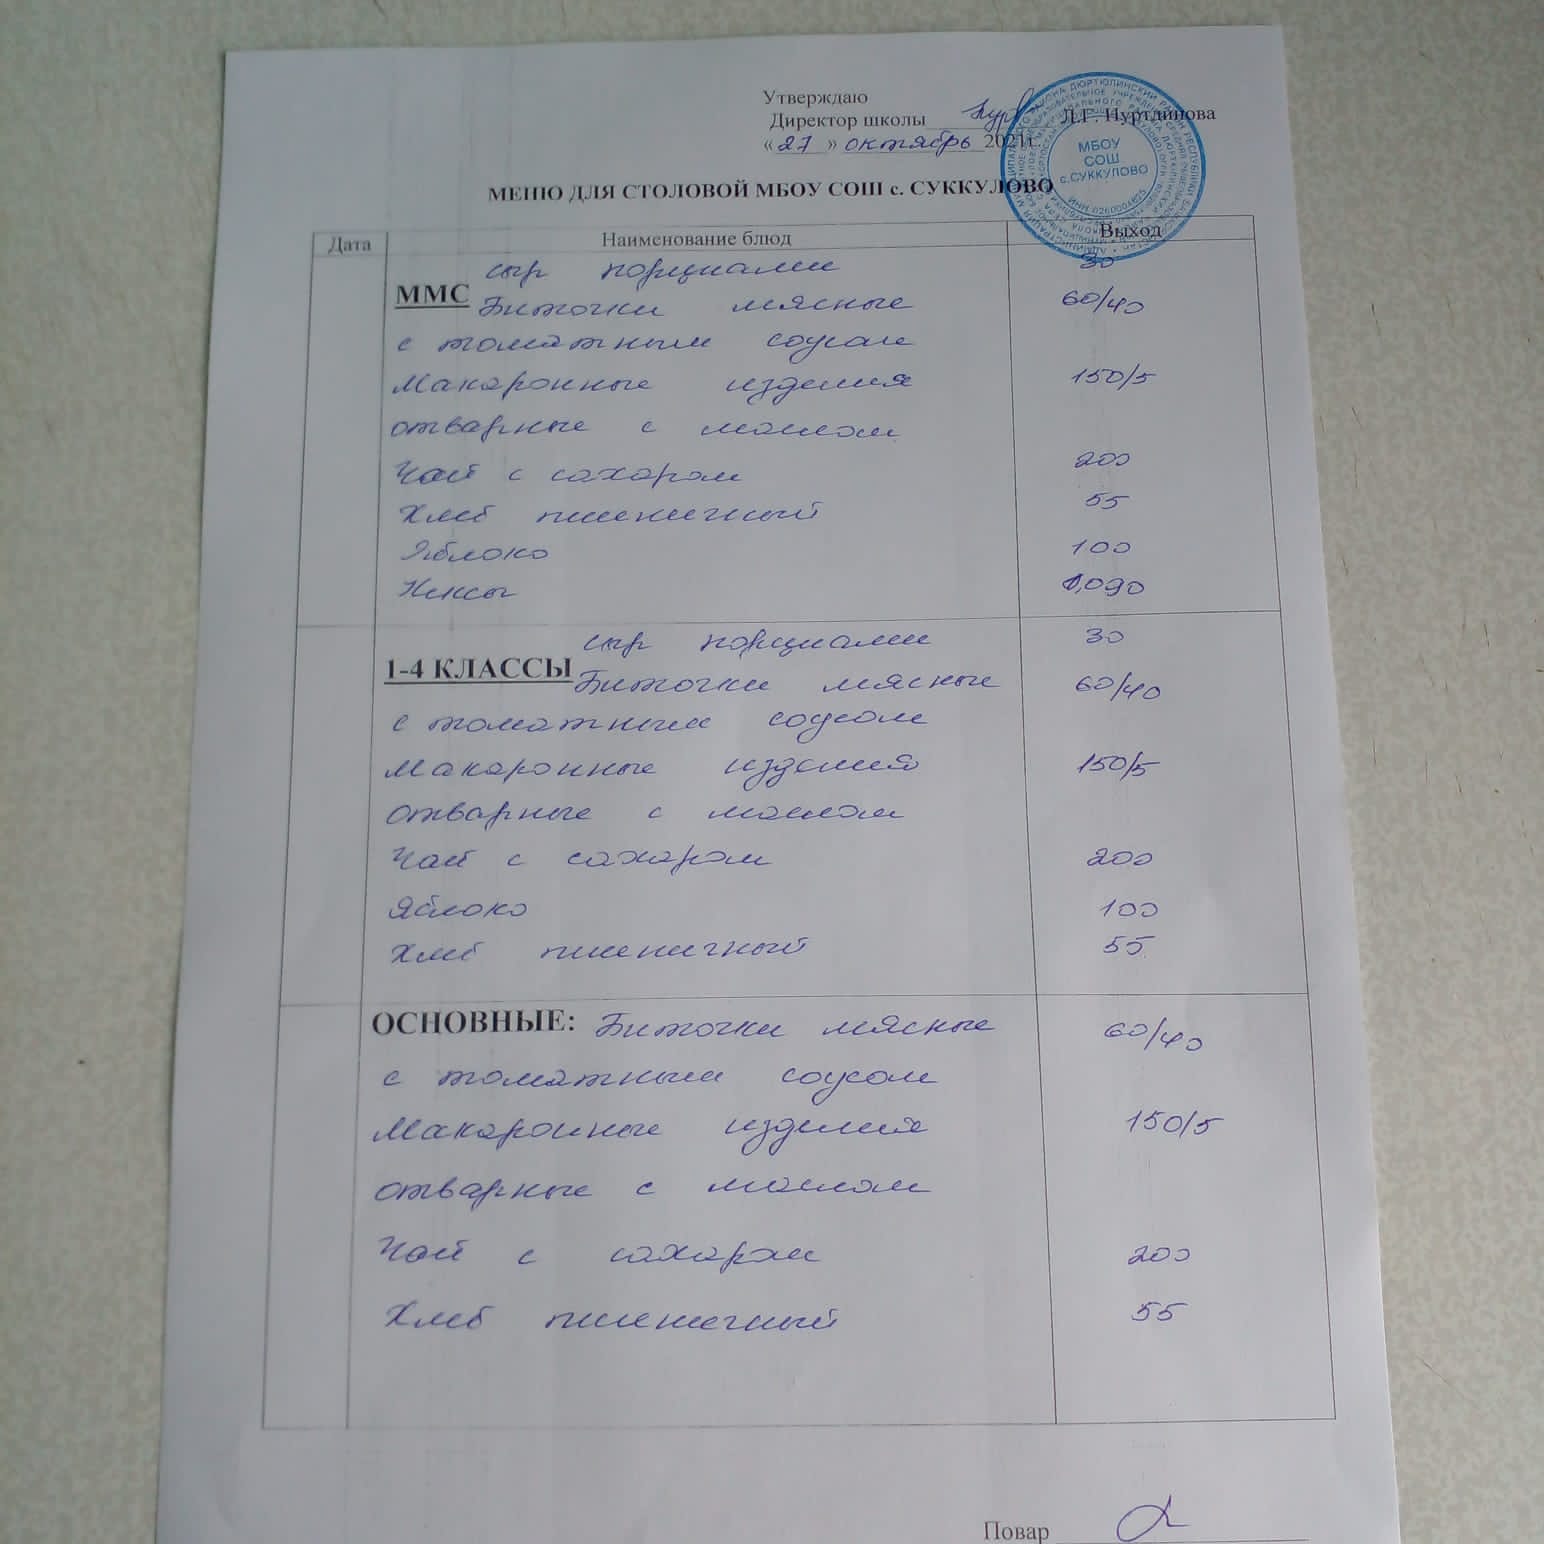 Утверждаю
Директор школы Л.Г. Нуртдинова
«27» октябрь 2021г.
МБОУ
СОШ
с.СУККУЛОВО
МЕНЮ ДЛЯ СТОЛОВОЙ МБОУ СОШ с. СУККУЛОВО
Дата Наименование блюд Выход
сыр порциями 30
ММС Биточки мясные 60/40
с томатным соусом
Макаронные изделия 150/5
отварные с маслом
Чай с сахаром 200
Хлеб пшеничный 55
Яблоко 100
Кексы 0,090
сыр порциями 30
1-4 КЛАССЫ Биточки мясные 60/40
с томатным соусом
Макаронные изделия 150/5
отварные с маслом
Чай с сахаром 200
Яблоко 100
Хлеб пшеничный 55
ОСНОВНЫЕ: Биточки мясные 60/40
с томатным соусом
Макаронные изделия 150/5
отварные с маслом
Чай с сахаром 200
Хлеб пшеничный 55
Повар